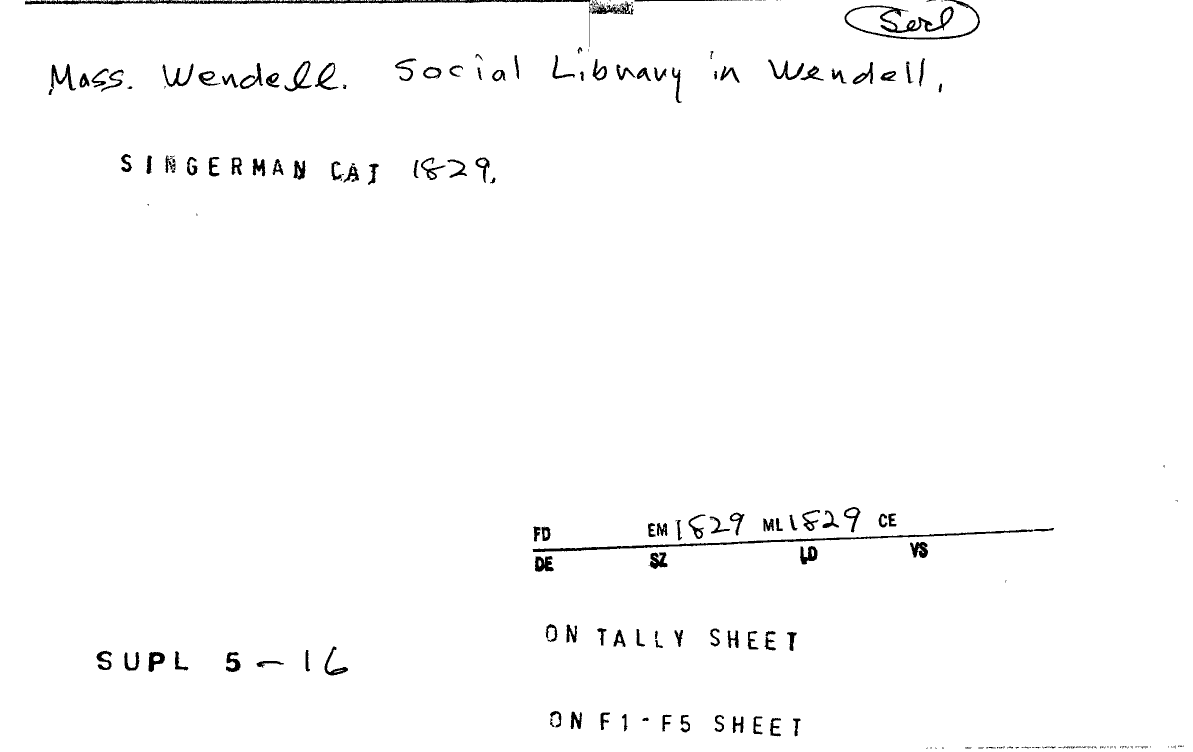 Socl
Mass. Wendell. Social Library in Wendell,
SINGERMAN CAT 1829,
FD EM 1829 ML 1829 CE
DE SZ LD VS
ON TALLY SHEET
SUPL 5-16
ON F1-F5 SHEET